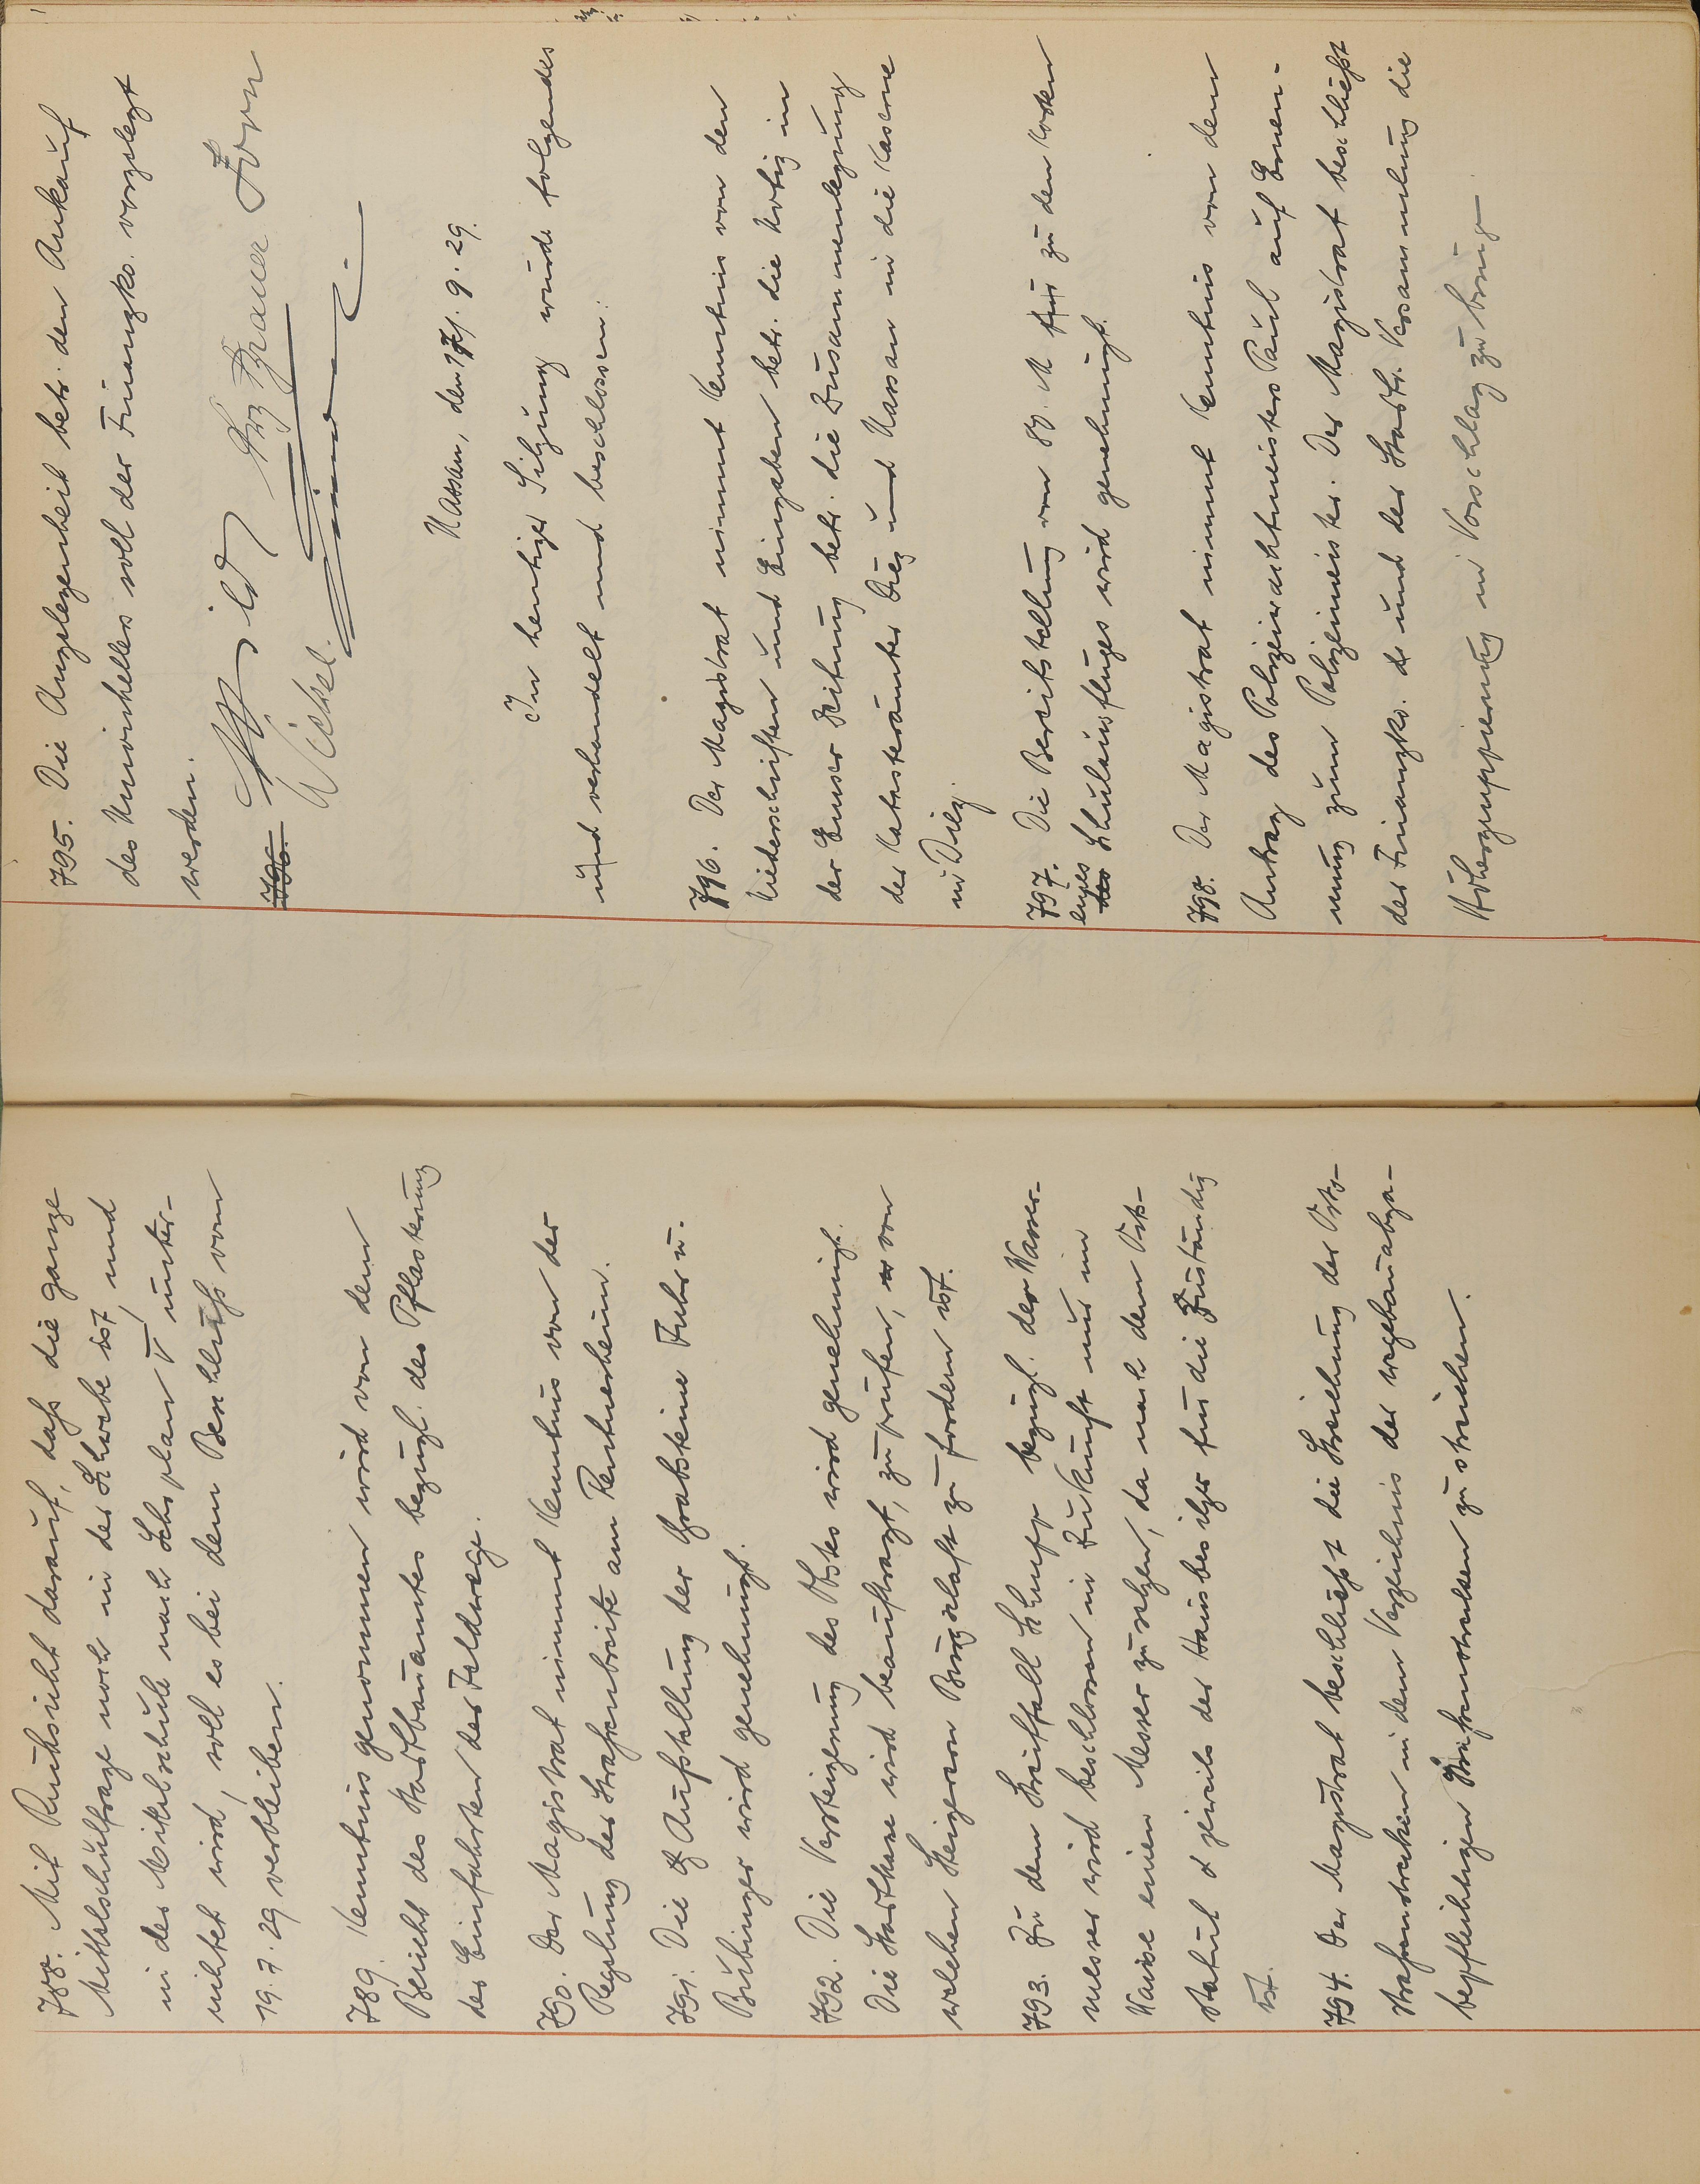 788. Mit Rücksicht darauf, daß die ganze
Mittelschulfrage noch in der Schwebe ist, und
in der Mittelschule nach Lehrplan V unter-
richtet wird, soll es bei dem Beschluß vom
19.7.29 verbleiben.
789. Kenntnis genommen wird von dem
Bericht des Stadtbauamtes bezügl. des Pflasterung
der Einfahrten der Feldwege.
790. Der Magistrat nimmt Kenntnis von der
Regelung der Straßenbreite am Rentnerheim.
791. Die Aufstellung der Grabsteine Fuhr u.
Bubinger wird genehmigt.
792. Die Versteigerung des Obstes wird genehmigt.
Die Stadtkasse wird beauftragt, zu prüfen, von
welchen Steigerern Bürgschaft zu fordern ist.
793. Zu dem Streitfall Schupp bezügl. der Wasser-
messer wird beschlossen in Zukunft nur im
Hause einen Messer zu setzen, da nach dem Orts-
statut jeweils der Hausbesitzer für die zuständig
ist.
794. Der Magistrat beschließt die Streichung der Orts-
straßenstrecken in dem Verzeichnis der wegebauabga-
bepflichtigen Straßenstrecken zu streichen.
795. Die Angelegenheit betr. den Ankauf
des Kunisthelles soll der Finanzko. vorgelegt
werden.
796.
Brauer Zorn
Wichel.
Nassau, den 17.9.29.
In heutiger Sitzung wurde folgendes
und verhandelt und beschlossen:
796. Der Magistrat nimmt Kenntnis von den
Niederschriften und Eingaben betr. die Notiz in
der Emser Zeitung betr. die Zusammenlegung
der Katasterämter Diez und Nassau in die Kaserne
in Diez.
797. Die Bereitstellung von 80. M zu den Kosten
eines des Schulausfluges wird genehmigt.
798. Der Magistrat nimmt Kenntnis von dem
Antrag des Polizeiwachtmeisters Paul auf Ernen-
nung zum Polizeimeister. Der Magistrat beschließt
der Finanzko. und der Stadtv. Versammlung die
Höhergruppierung in Vorschlag zu bringen.